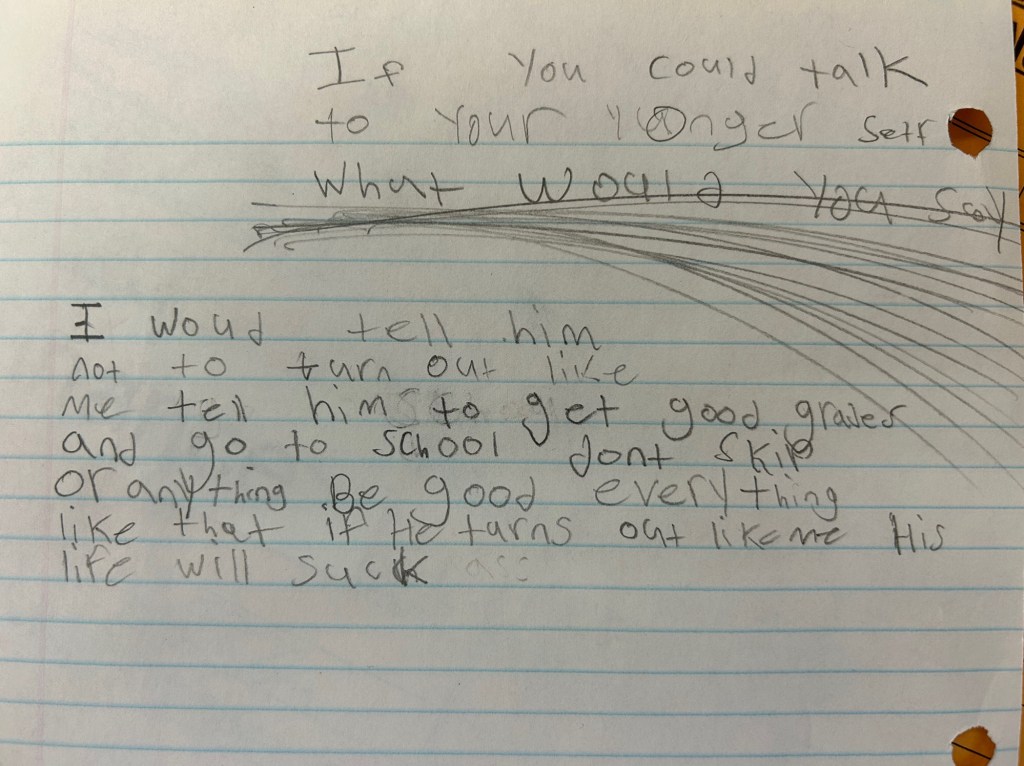 If you could talk
to your yonger self
What would you say
I woud tell him
not to turn out like
me tell him to get good grades
and go to school dont skip
or anything Be good everything
like that if He turns out like me His
life will suck ass